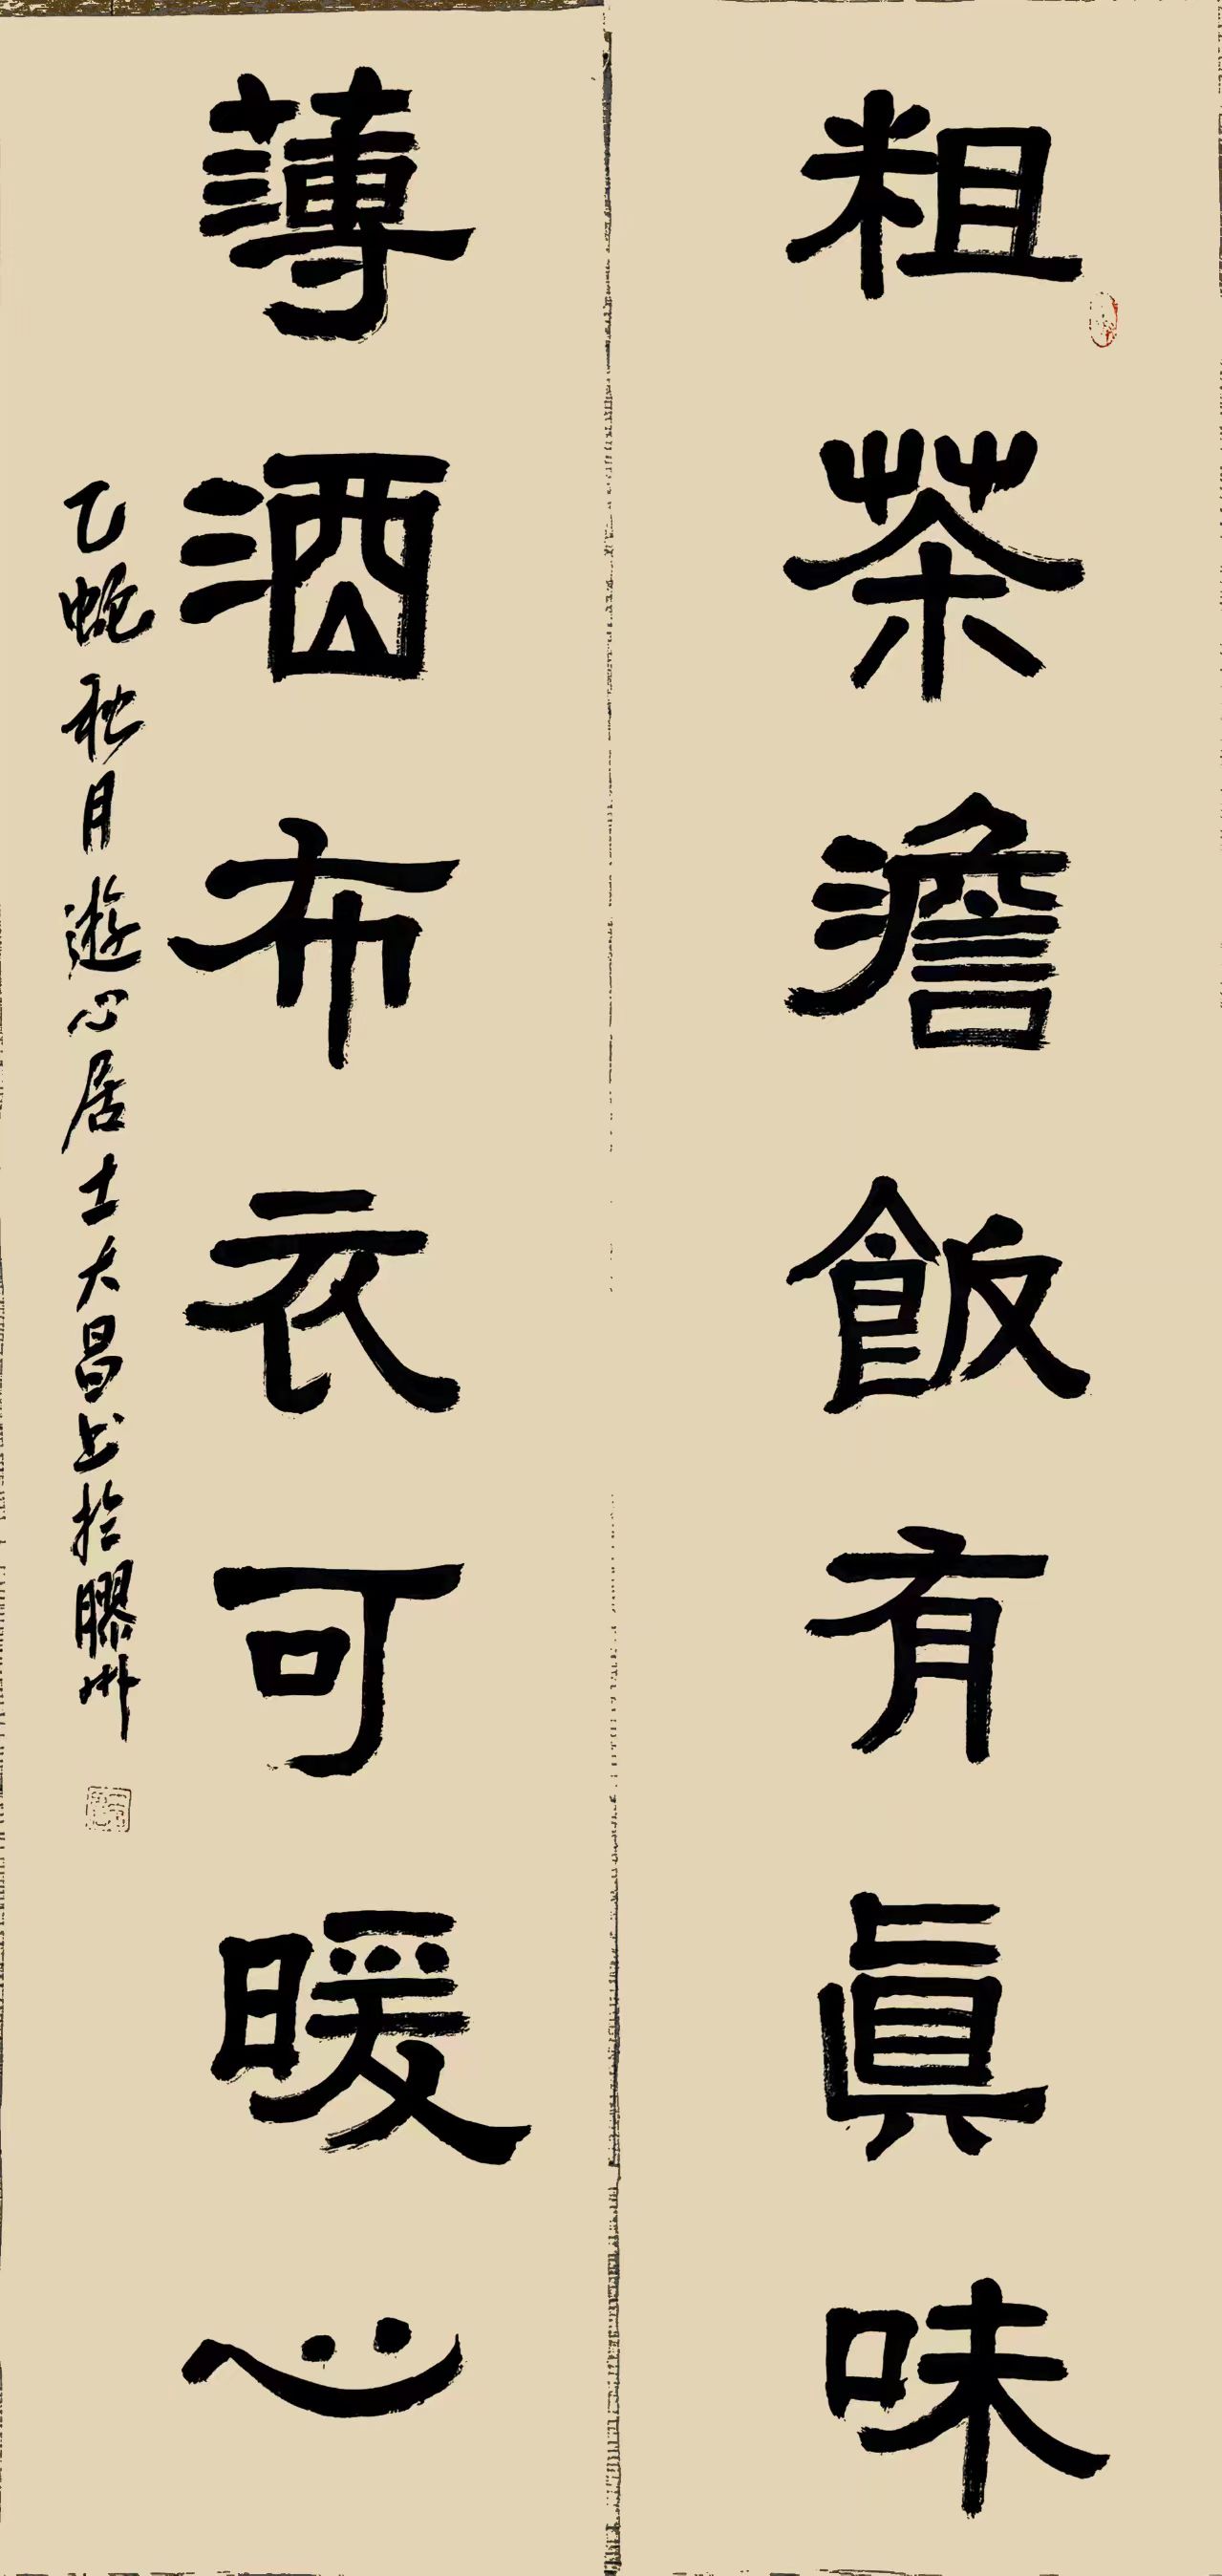 粗茶澹飯有眞味
薄酒布衣可暖心
乙蛇秋月遊心居士大昌书於膠州